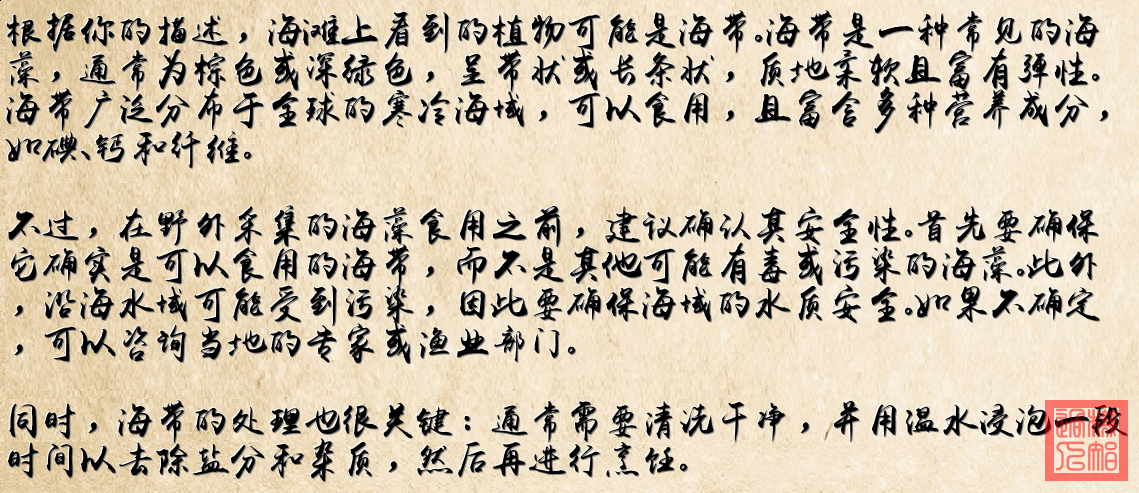 根据你的描述，海滩上看到的植物可能是海带。海带是一种常见的海
藻，通常为棕色或深绿色，呈带状或长条状，质地柔软且富有弹性。
海带广泛分布于全球的寒冷海域，可以食用，且富含多种营养成分，
如碘、钙和纤维。
不过，在野外采集的海藻食用之前，建议确认其安全性。首先要确保
它确实是可以食用的海带，而不是其他可能有毒或污染的海藻。此外
，沿海水域可能受到污染，因此要确保海域的水质安全。如果不确定
，可以咨询当地的专家或渔业部门。
同时，海带的处理也很关键：通常需要清洗干净，并用温水浸泡一段
时间以去除盐分和杂质，然后再进行烹饪。